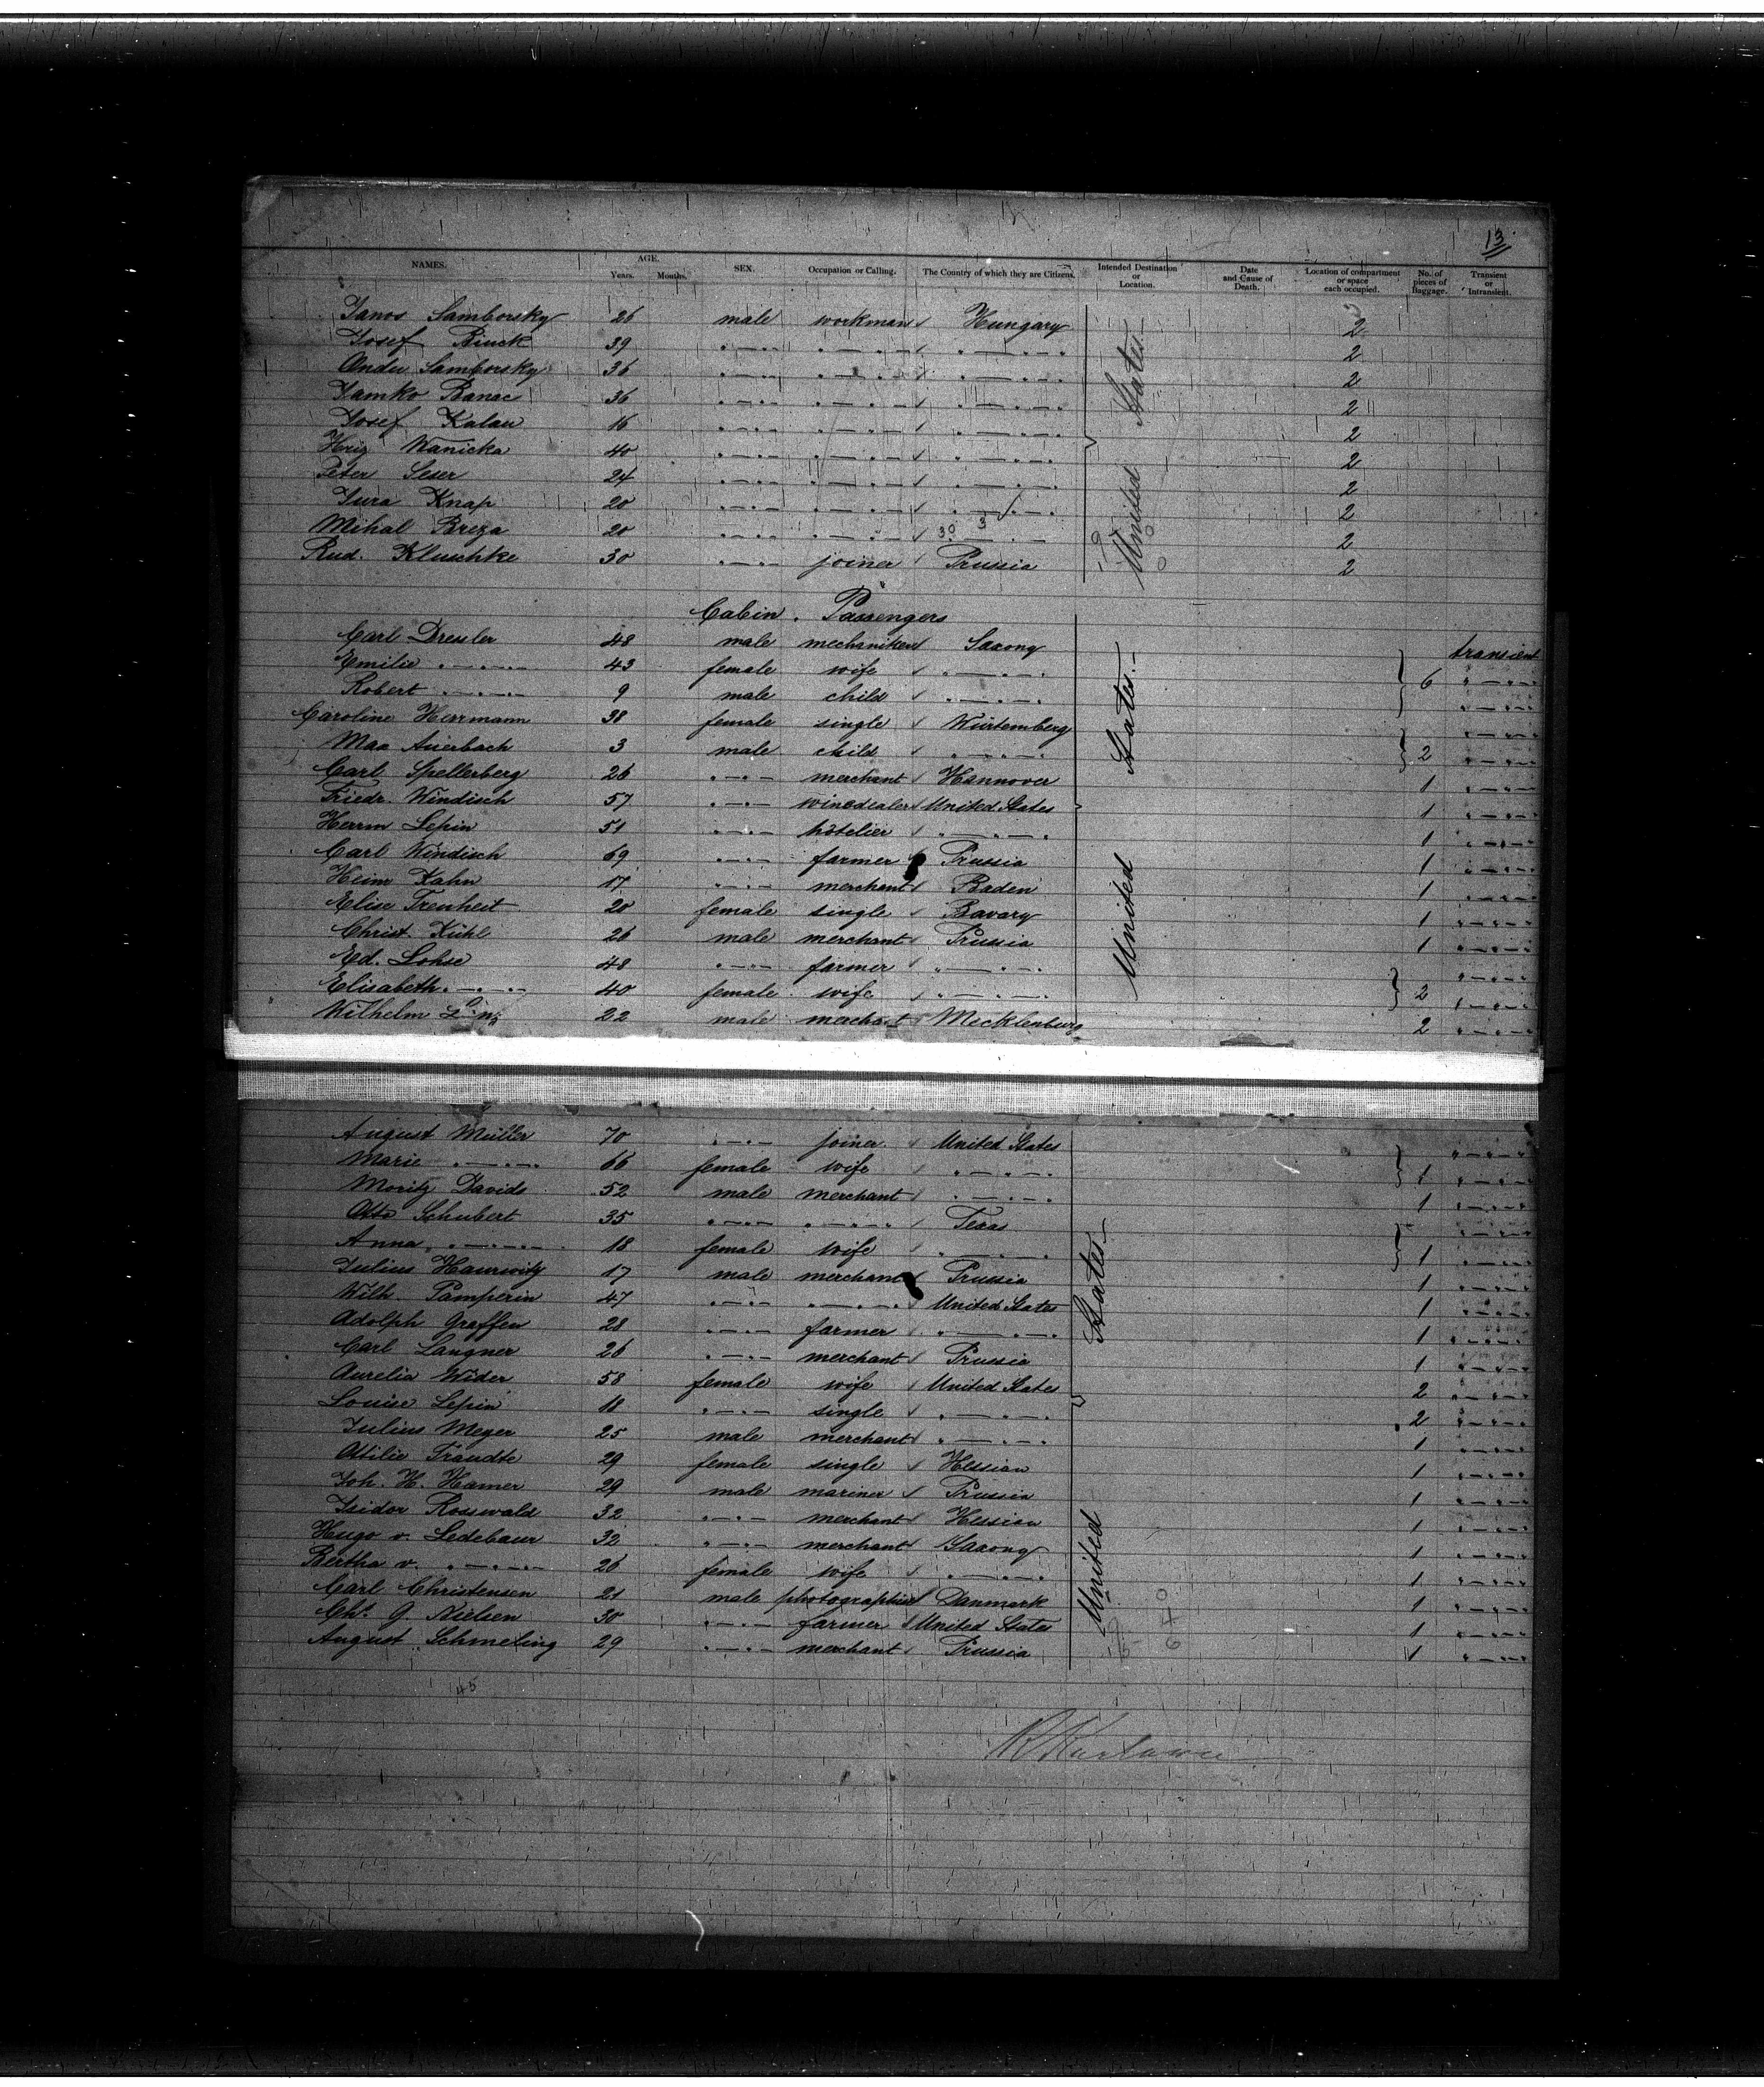 13
NAMES. AGE. Years. Months. SEX. Occupation or Calling. The Country of which they are Citizens. Intended Destination or Location. Date and Cause of Death. Location of compartment or space each occupied. No. of pieces of Baggage. Transient or Intransient.
Janos Samborsky 26 male workman Hungary 2
Josef 39 " " " 2
Samborsky 36 " " " 2
Janko Banac 36 " " " 2
Josef Kalan 16 " " " 2
Wanicka 40 " " " 2
Peter Seser 24 " " " 2
Jura Knap 20 " " " 2
Mihal Breza 20 " " " 2
Rud. Kluschke 30 " joiner Prussia 2
United States.
Cabin Passengers
Carl Dresler 48 male mechaniker Saxony transient
Emilie " 43 female wife " 6 "
Robert " 9 male child " "
Caroline Herrmann 38 female single Würtemberg "
Max Auerbach 3 male child " 2 "
Carl Spellerberg 26 " merchant Hannover 1 "
Friedr. Windisch 57 " winedealer United States 1 "
Herrm Lepin 51 " hôtelier " 1 "
Carl Windisch 69 " farmer Prussia 1 "
Heim Kahn 17 " merchant Baden 1 "
Elise Treuheit 20 female single Bavary 1 "
Christ. Kühl 26 male merchant Prussia 1 "
Ed. Lohse 48 " farmer " "
Elisabeth " 40 female wife " 2 "
Wilhelm 22 male merchant Mecklenburg 2 "
United States.
August Müller 70 " joiner United States "
Marie " 66 female wife " 1 "
Moritz Davids 52 male merchant " 1 "
Otto Schubert 35 " " Texas "
Anna " 18 female wife " 1 "
Julius Hauwitz 17 male merchant Prussia 1 "
Wilh. Pamperin 47 " " United States 1 "
Adolph Graffen 28 " farmer " 1 "
Carl Langner 26 " merchant Prussia 1 "
Aurelia Wider 58 female wife United States 2 "
Louise Lepin 18 " single " 2 "
Julius Meyer 25 male merchant " 1 "
Ottilie Traudte 29 female single Hessian 1 "
Joh. H. Hamer 29 male mariner Prussia 1 "
Isidor Rosswald 32 " merchant Hessian 1 "
Hugo v. Ledebaur 32 " merchant Saxony 1 "
Bertha v. " 26 female wife " 1 "
Carl Christensen 21 male Danmark 1 "
Chs. G. Nielsen 30 " farmer United States 1 "
August Schmeling 29 " merchant Prussia 1 "
United States
640
45